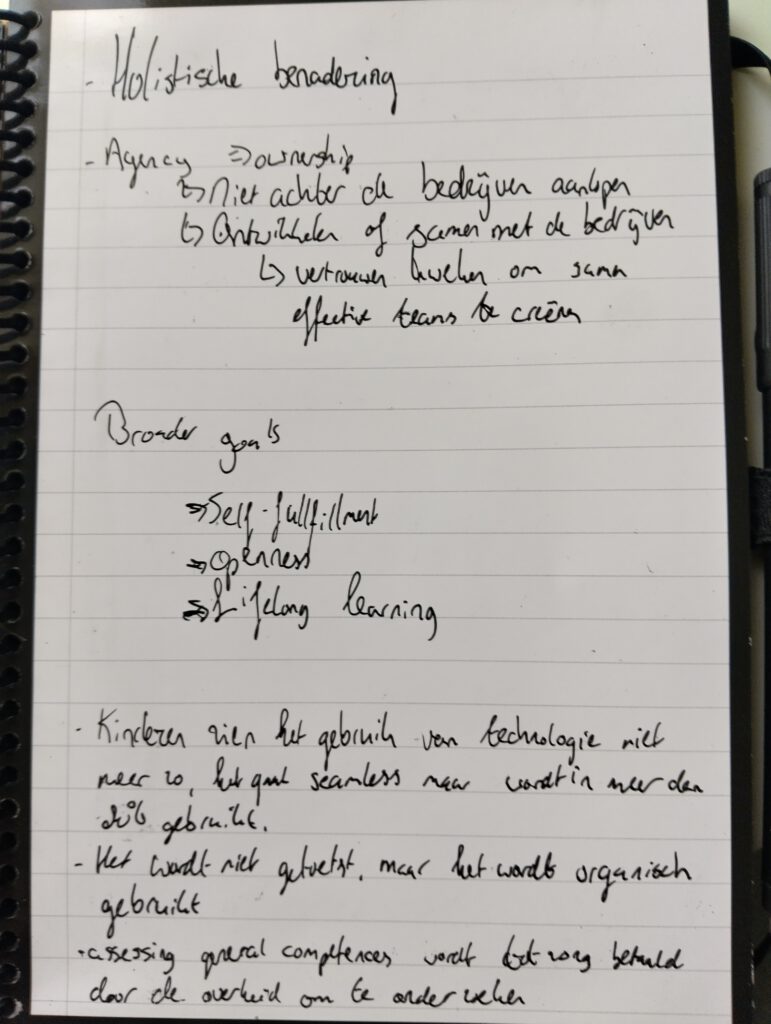 - Holistische benadering
- Agency => ownership
↳ Niet achter de bedrijven aanlopen
↳ Ontwikkelen of samen met de bedrijven
↳ vertrouwen kweken om samen
effective teams te creëren
Broader goals
=> Self-fullfillment
=> Openness
=> Lifelong learning
- Kinderen zien het gebruik van technologie niet
meer zo, het gaat seamless maar wordt in meer dan
% gebruikt.
- Het wordt niet getoetst, maar het wordt organisch
gebruikt
- assessing general competences wordt betaald
door de overheid om te onderzoeken